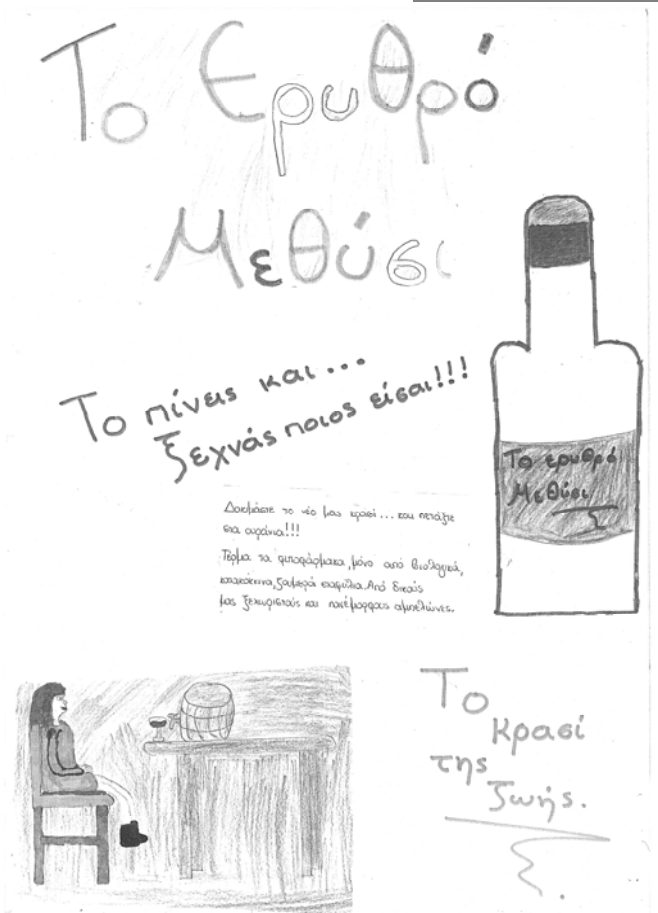 Το Ερυθρό
Μεθύσι
Το πίνεις και...
ξεχνάς ποιος είσαι!!!
Το ερυθρό
Μεθύσι
Δοκιμάστε το νέο μας κρασί... και πετάξτε
στα ουράνια!!!
Τέρμα τα φυτοφάρμακα, μόνο από βιολογικά,
κατακόκκινα, ζουμερά σταφύλια. Από δικούς
μας ξεχωριστούς και πανέμορφους αμπελώνες.
Το
κρασί
της
ζωής.